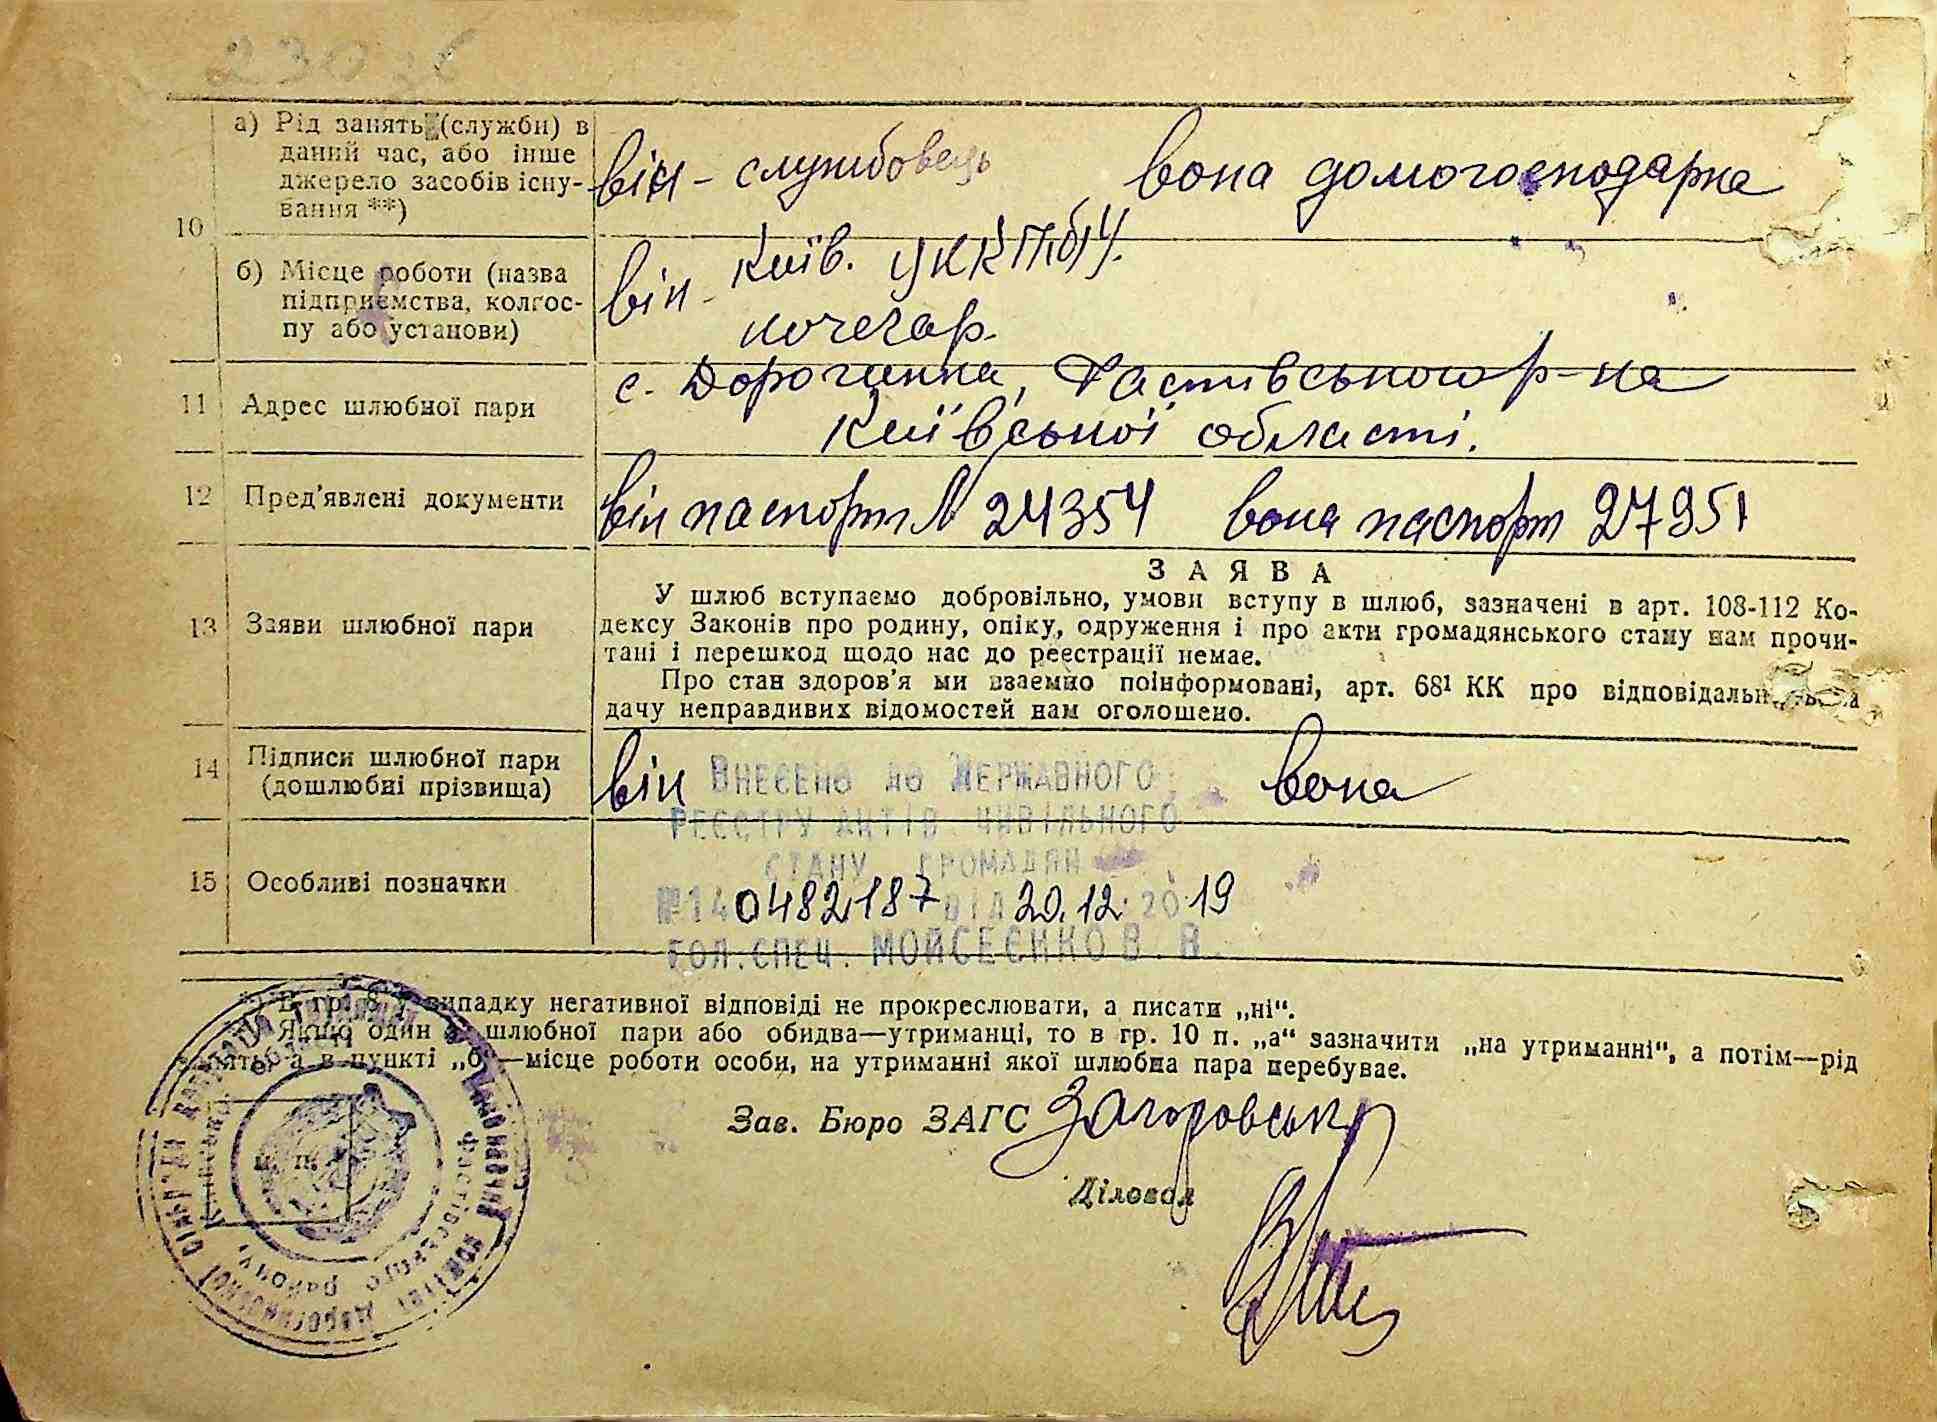 10
а) Рід занять (служби) в
даний час, або інше
джерело засобів існу-
вання **)
він - службовець вона домогосподарка
б) Місце роботи (назва
підприємства, колгос-
пу або установи)
він - Київ.
кочегар.
11 Адрес шлюбної пари
с. Дорогинка, Фастівського р-на
Київської області.
12 Пред'явлені документи
він паспорт № 24354 вона паспорт 27951
13 Заяви шлюбної пари
ЗАЯВА
У шлюб вступаємо добровільно, умови вступу в шлюб, зазначені в арт. 108-112 Ко-
дексу Законів про родину, опіку, одруження і про акти громадянського стану нам прочи-
тані і перешкод щодо нас до реєстрації немає.
Про стан здоров'я ми взаємно поінформовані, арт. 68¹ КК про
дачу неправдивих відомостей нам оголошено.
14 Підписи шлюбної пари
(дошлюбні прізвища)
він вона
ВНЕСЕНО ДО ДЕРЖАВНОГО
РЕЄСТРУ АКТІВ ЦИВІЛЬНОГО
СТАНУ ГРОМАДЯН
15 Особливі позначки
№140482187 ВІД 20.12.2019
ГОЛ.СПЕЦ. МОЙСЕЄНКО В.В.
*) В гр. 8 у випадку негативної відповіді не прокреслювати, а писати „ні“.
Якщо один з шлюбної пари або обидва—утриманці, то в гр. 10 п. „а“ зазначити „на утриманні“, а потім—рід
занять, а в пункті „б“—місце роботи особи, на утриманні якої шлюбна пара перебуває.
Зав. Бюро ЗАГС
Діловод
М. П.